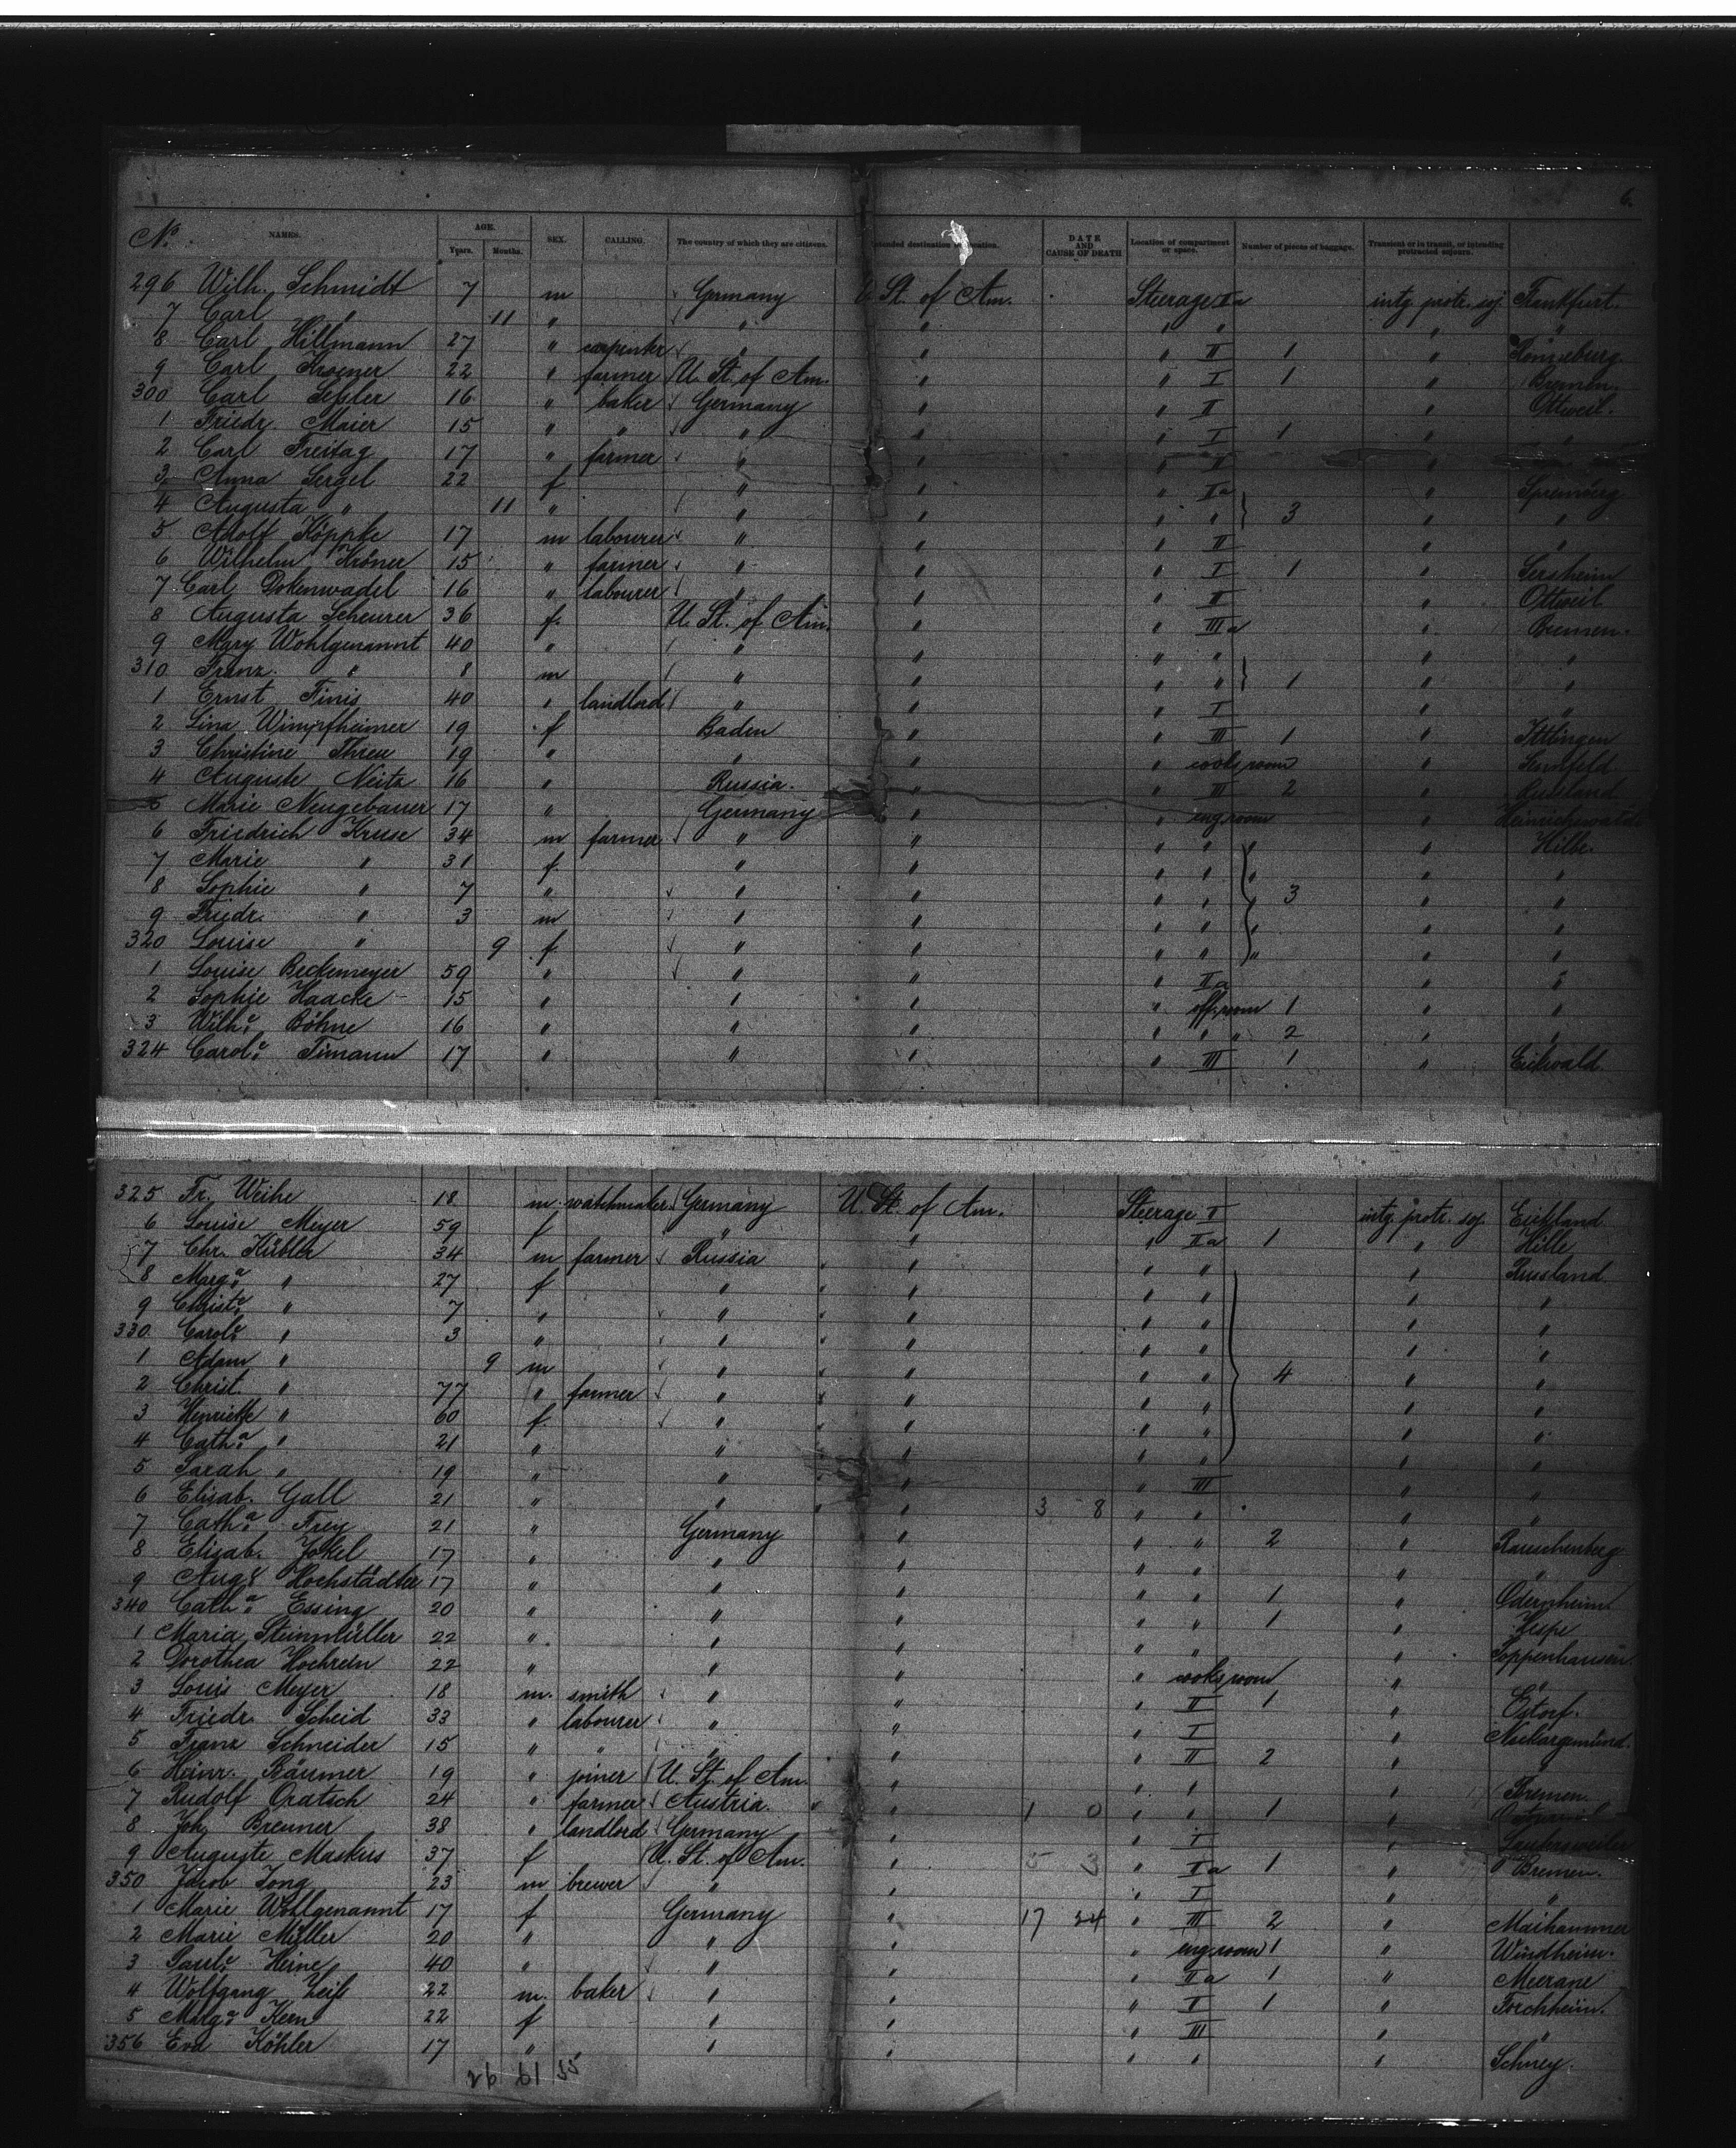 6.
No. NAMES. AGE. Years. Months. SEX. CALLING. The country of which they are citizens. Intended destination or location. DATE AND CAUSE OF DEATH Location of compartment or space. Number of pieces of baggage. Transient or in transit, or intending protracted sojourn.
296 Wilh. Schmidt 7 m Germany U. St. of Am. Steerage IIa intg. protr. soj. Frankfurt.
7 Carl " 11 " " " " " " "
8 Carl Hillmann 27 " carpenter " " " II 1 "
9 Carl Kroener 22 " farmer U. St. of Am. " " I 1 " Bremen.
300 Carl Seßler 16 " baker Germany " " II " Ottweil.
1 Friedr. Maier 15 " " " " " I 1 " "
2 Carl Freitag 17 " farmer " " " II "
3 Anna Sergel 22 f " " " IIa " Spremberg
4 Augusta " 11 " " " " " 3 " "
5 Adolf Köppke 17 m labourer " " " II " "
6 Wilhelm Kröner 15 " farmer " " " I 1 " Sersheim
7 Carl Dokenwadel 16 " labourer " " " II " Ottweil
8 Augusta Scheurer 36 f. U. St. of Am. " " IIIa " Bremen.
9 Mary Wohlgenannt 40 " " " " " " "
310 Franz. " 8 m " " " " 1 " "
1 Ernst Finis 40 " landlord " " " I " "
2 Lina Wimpfheimer 19 f Baden " " III 1 " Ittlingen
3 Christine Threu 19 " " " " cooks room " Sennfeld
4 Auguste Neitz 16 " Russia. " " III 2 " Russland
5 Marie Neugebauer 17 " Germany " " eng. room " Heinrichswalde
6 Friedrich Kruse 34 m farmer " " " " " " Hille.
7 Marie " 31 f. " " " " " " "
8 Sophie " 7 " " " " " 3 " "
9 Friedr. " 3 m " " " " " " "
320 Louise " 9 f. " " " " " " "
1 Louise Beckemeyer 59 " " " " IIa " "
2 Sophie Haacke 15 " " " " off. room 1 " "
3 Wilhe. Böhne 16 " " " " " " 2 " "
324 Carole. Timann 17 " " " " III 1 " Eickwald
325 Fr. Weihe 18 m. watchmaker Germany U. St. of Am. Steerage II intg. protr. soj. Eickland
6 Louise Meyer 59 f " " " IIa 1 " Hille
7 Chr. Kübler 34 m farmer Russia " " " " Russland
8 Marga. " 27 f " " " " " "
9 Christe. " 7 " " " " " " "
330. Carole. " 3 " " " " " " "
1 Adam " 9 m " " " " 4 " "
2 Christ. " 77 " farmer " " " " " "
3 Henriette " 60 f. " " " " " "
4 Catha. " 21 " " " " " " "
5 Sarah " 19 " " " " III " "
6 Elisab. Gall 21 " " " 3 8 " " " "
7 Catha. Frey 21 " Germany " " " 2 " Rauschenberg
8 Elisab. Jokel 17 " " " " " " "
9 Aug. Hochstädter 17 " " " " " 1 " Odernheim
340 Catha. Essing 20 " " " " " 1 " Kespe
1 Maria Steinmüller 22 " " " " " " Poppenhausen
2 Dorothea Hochrein 22 " " " " cooks room " "
3 Louis Meyer 18 m. smith " " " II 1 " Estorf.
4 Friedr. Scheid 33 " labourer " " " I " Neckargemünd.
5 Franz Schneider 15 " " " " " II 2 " "
6 Heinr. Bäumer 19 " joiner U. St. of Am. " " " " Bremen.
7 Rudolf Opatsch 24 " farmer Austria. " 1 0 " " 1 "
8 Joh. Brenner 38 " landlord Germany " " I "
9 Auguste Maskus 37 f U. St. of Am. " 5 3 " IIa 1 " Bremen.
350 Jacob Jong 23 m brewer " " " I " "
1 Marie Wohlgenannt 17 f Germany " 17 24 " III 2 " Maihammer
2 Marie Müller 20 " " " " eng. room 1 " Windheim.
3 Paule. Heine 40 " " " IIa 1 " Meerane
4 Wolfgang Zeiß 22 m. baker " " " I 1 " Forchheim.
5 Marga. Kern 22 f " " " III " "
356 Eva Köhler 17 " " " " " " Schney.
26 61 55